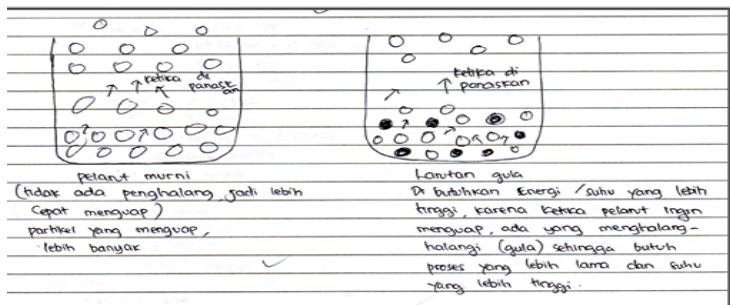 ketika di
panaskan
ketika di
panaskan
pelarut murni
(tidak ada penghalang, jadi lebih
cepat menguap)
partikel yang menguap,
lebih banyak
Larutan gula
Di butuhkan Energi / suhu yang lebih
tinggi, karena ketika pelarut ingin
menguap, ada yang menghalang-
halangi (gula) sehingga butuh
proses yang lebih lama dan suhu
yang lebih tinggi.